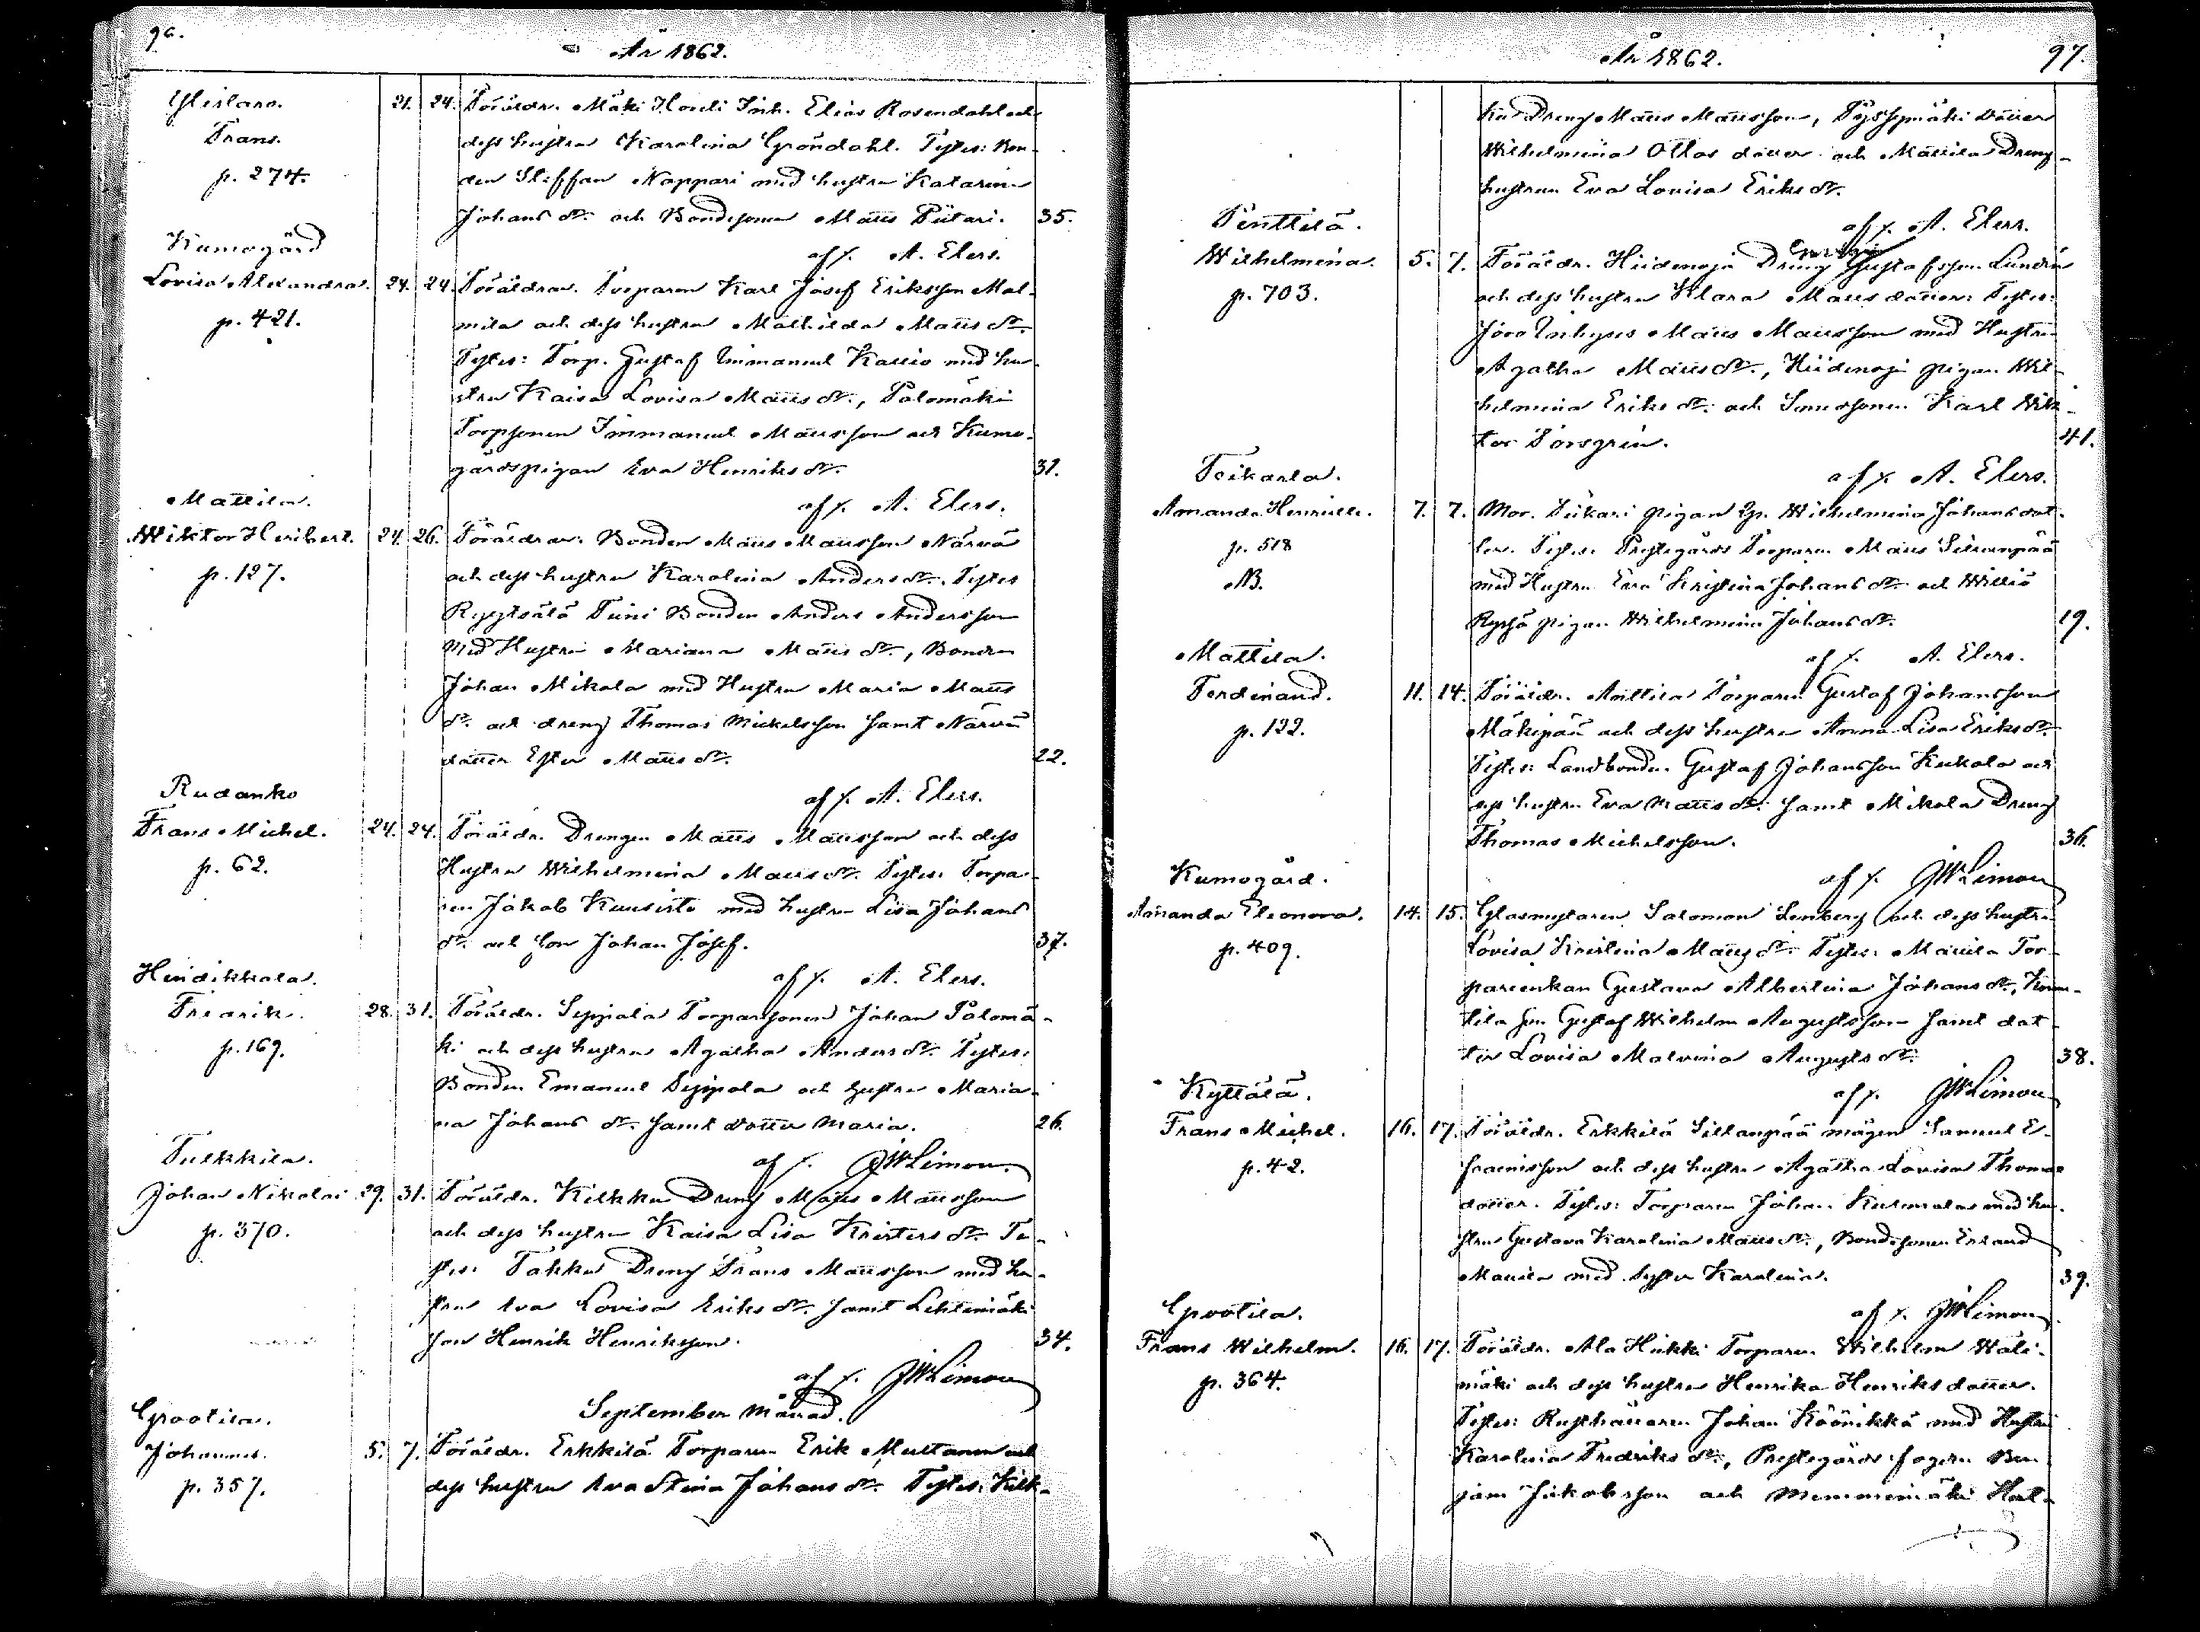 96.
År 1862.
Ylistaro.
Frans.
p. 274.
21. 24. Föräldr. Mäki Houli Inh. Elias Rosendahl och
dess hustru Karolina Gröndahl. Testes: Bon-
den Steffan Nappari med hustru Katarina
Johans dr. och Bondesonen Matts Piitari. 35.
af /. A. Elers.
Kumogård
Lovisa Alexandra.
p. 421.
24. 24. Föräldrar. Torparen Karl Josef Eriksson Mal-
mila och dess hustru Mathilda Matts dr.
Testes: Torp. Gustaf Immanuel Kallio med hu-
stru Kaisa Lovisa Matts dr., Palomäki
Torpsonen Immanuel Mattsson och Kumo-
gårdspigan Eva Henriks dr. 31.
af /. A. Elers.
Mattila.
Wiktor Heribert.
p. 127.
24. 26. Föräldrar. Bonden Matts Mattsson Närvä
och dess hustru Karolina Anders dr. Testes
Anders Andersson
Med Hustru Mariana Matts dr., Bonden
Johan Mikola med Hustru Maria Matts
dr. och dreng Thomas Mickelsson samt Närvä
datter Ester Matts dr. 22.
af /. A. Elers.
Rudanko
Frans Michel.
p. 62.
24. 24. Föräldr. Drengen Matts Mattsson och dess
Hustru Wilhelmina Matts dr. Testes: Torpa-
ren Jakob Kuusisto med hustru Lisa Johans
dr. och son Johan Josef. 37.
af /. A. Elers.
Heidikkala.
Fredrik.
p. 169.
28. 31. Föräldr. Seppälä Torparsonen Johan Palomä-
ki och dess hustru Agatha Anders dr. Testes:
Bonden Emanuel Seppälä och hustru Maria-
na Johans dr. samt dotter Maria. 26.
af /. JWLimon.
Tulkkila.
Johan Nikolai
p. 370.
29. 31. Föräldr. Kilkku Dreng Matts Mattsson
och dess hustru Kaisa Lisa Kristers dr. Te-
stes: Takku Dreng Frans Mattsson med hu-
stru Eva Lovisa Eriks dr. samt Lehtimäki
son Henrik Henriksson. 34.
af /. JWLimon
September Månad.
Grootila.
Johannes.
p. 357.
5. 7. Föräldr. Erkkilä Torparen Erik Multanen och
dess hustru Eva Stina Johans dr. Testes: Kilk-
År 1862.
97.
ku Dreng Matts Mattsson, dotter
Wilhelmina Ottos dotter och Mattila Dreng-
hustrun Eva Lovisa Eriks dr.
af /. A. Elers.
Penttilä.
Wilhelmina.
p. 703.
5. 7. Föräldr. Hiidenoja Dreng Gustafsson Lundén
och dess hustru Klara Matts dotter: Testes:
Matts Mattsson med Hustru
Agatha Matts dr., Hiidenoja pigan Wil-
helmina Eriks dr. och Smedsonen Karl Wik-
tor Forsgrén. 41.
af /. A. Elers.
Teikarla.
Amanda Henriette.
p. 518
NB.
7. 7. Mor. Piikari pigan Wilhelmina Johans dot-
ter. Testes: Prestegårds Torparen Matts Sillanpää
med Hustru Eva Kristina Johans dr. och
pigan Wilhelmina Johans dr. 19.
af /. A. Elers.
Mattila.
Ferdinand.
p. 122.
11. 14. Föräldr. Anttila Torparen Gustaf Johansson
Mäkipää och dess hustru Anna Lisa Eriks dr.
Testes: Landbonden Gustaf Johansson Kukola och
dess hustru Eva Matts dr. samt Mikola Dreng
Thomas Michelsson. 36.
af /. JWLimon
Kumogård.
Amanda Eleonora.
p. 409.
14. 15. Glasmestaren Salomon Lemberg och dess hustru
Lovisa Kristina Matts dr. Testes: Mattila Tor-
pareenkan Gustava Albertina Johans dr.,
tila son Gustaf Wilhelm Augustsson samt dot-
ter Lovisa Malvina Augusts dr. 38.
af /. JWLimon
Kyttälä.
Frans Michel.
p. 42.
16. 17. Föräldr. Erkkilä Sillanpää mågen Samuel E-
fraimsson och dess hustru Agatha Lovisa Thomas
dotter. Testes: Torparen Johan med hu-
stru Gustava Karolina Matts dr., Bondesonen Erland
Mattila med syster Karolina. 39.
af /. JWLimon
Grootila.
Frans Wilhelm.
p. 364.
16. 17. Föräldr. Ala Hukki Torparen Wilhelm Wäli-
mäki och dess hustru Henrika Henriks dotter.
Testes: Rusthållaren Johan Köönikkä med Hustru
Karolina Fredriks dr., Prestegårds fogden Ben-
jam Jakobsson och Memmenmäki Hat-